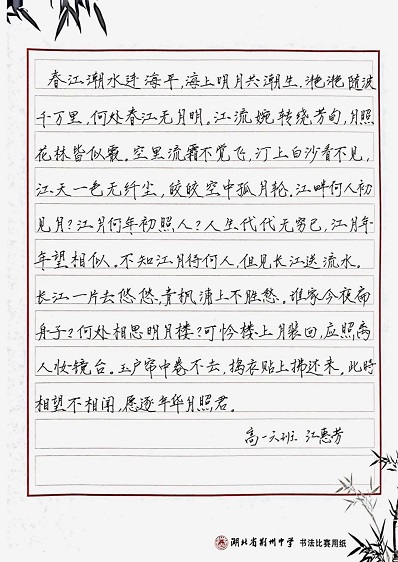 春江潮水连海平,海上明月共潮生。滟滟随波
千万里,何处春江无月明。江流婉转绕芳甸,月照
花林皆似霰。空里流霜不觉飞,汀上白沙看不见,
江天一色无纤尘,皎皎空中孤月轮。江畔何人初
见月?江月何年初照人?人生代代无穷已,江月年
年望相似。不知江月待何人,但见长江送流水。
长江一片去悠悠,青枫浦上不胜愁。谁家今夜扁
舟子?何处相思明月楼?可怜楼上月裴回,应照离
人妆镜台。玉户帘中卷不去,捣衣贴上拂还来。此时
相望不相闻,愿逐年华月照君。
高一六班 江惠芳
湖北省荆州中学 书法比赛用纸